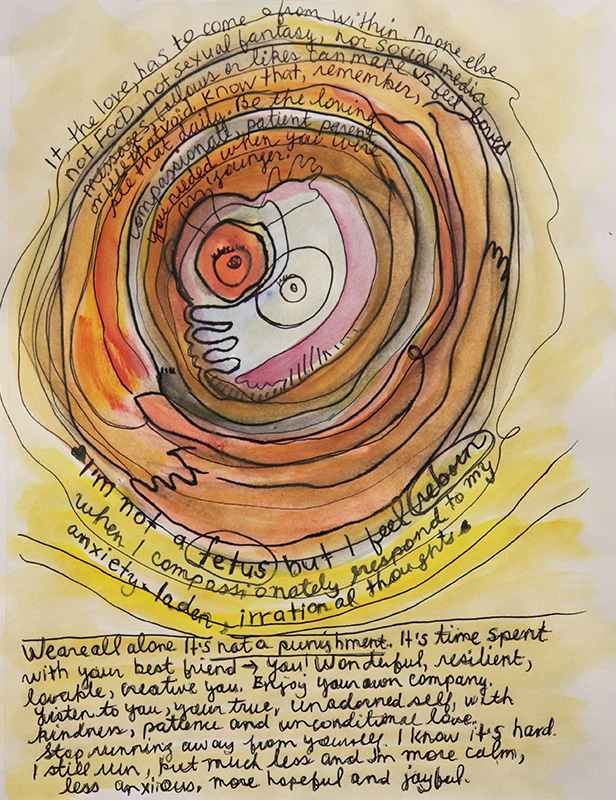 It, the love, has to come from within. No one else
not FOOD, not sexual fantasy, nor social media
messages, follows or likes can make us feel loved
or fill that void. Know that, remember,
see that daily. Be the loving
compassionate, patient parent
you needed when you were
younger.
I'm not a fetus but I feel reborn
when I compassionately respond to my
anxiety-laden, irrational thoughts.
We are all alone. It's not a punishment. It's time spent
with your best friend → you! Wonderful, resilient,
lovable, creative you. Enjoy your own company.
Listen to you, your true, unadorned self, with
kindness, patience and unconditional love.
Stop running away from yourself. I know it's hard.
I still run, but much less and I'm more calm,
less anxious, more hopeful and joyful.